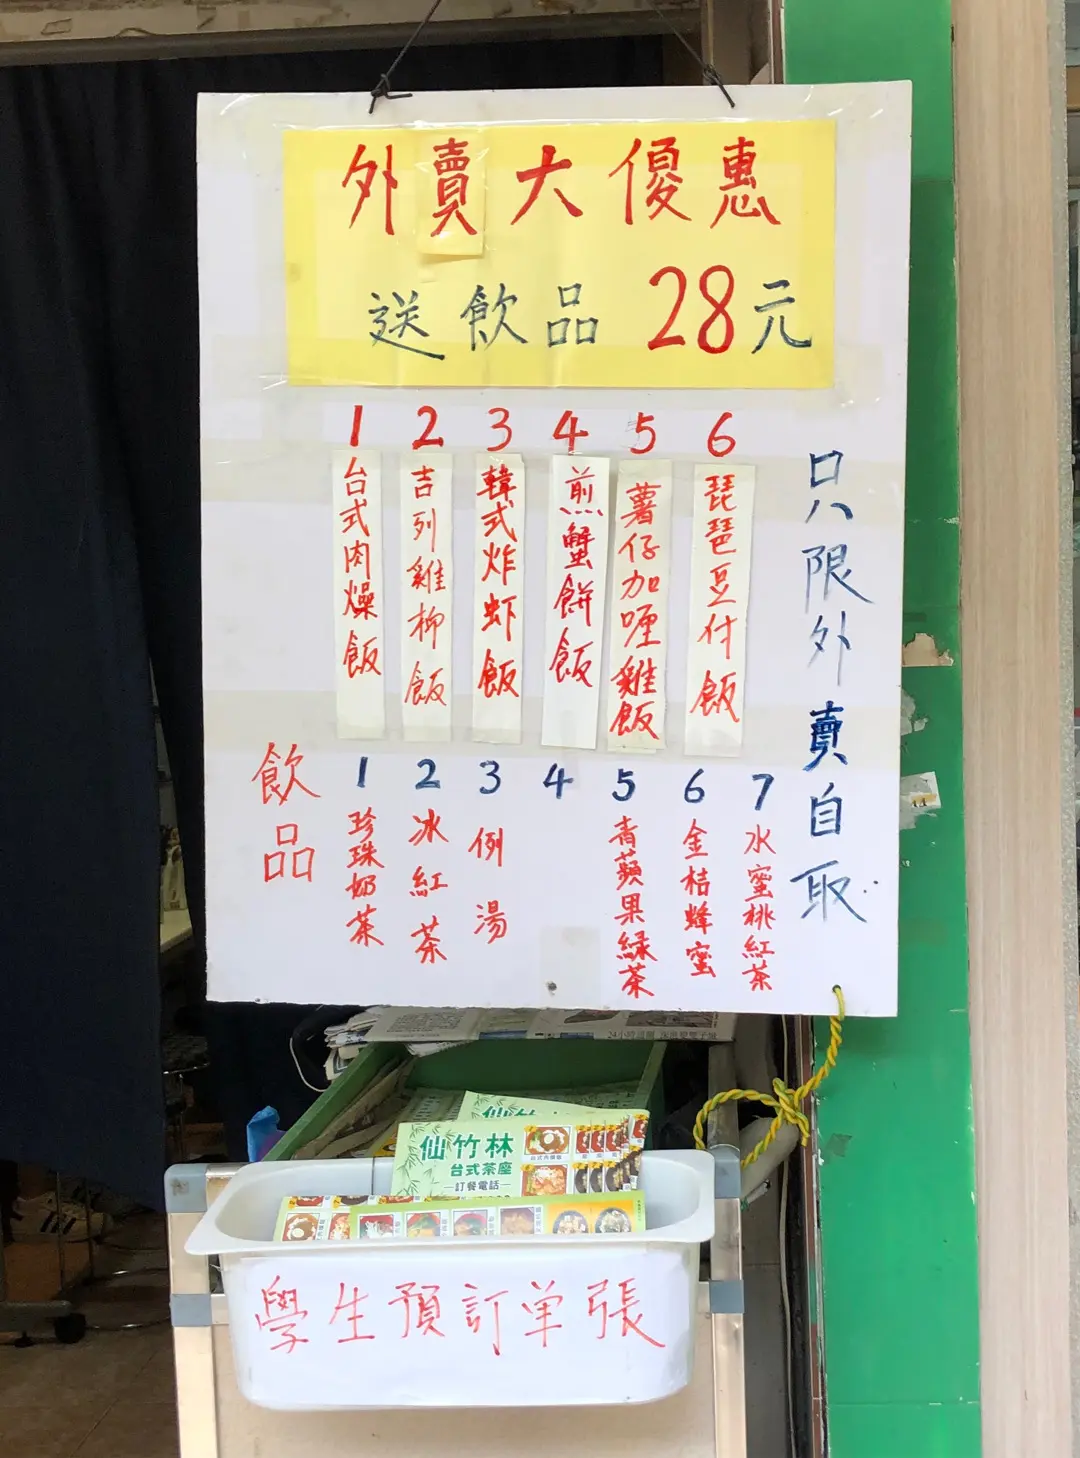 外賣大優惠
送飲品28元
1 2 3 4 5 6
台式肉燥飯
吉列雞柳飯
韓式炸虾飯
煎蟹餅飯
薯仔加喱雞飯
琵琶豆付飯
只限外賣自取
飲品
1 2 3 4 5 6 7
珍珠奶茶
冰紅茶
例湯
青蘋果綠茶
金桔蜂蜜
水蜜桃紅茶
仙竹林
台式茶座
訂餐電話
學生預訂单張